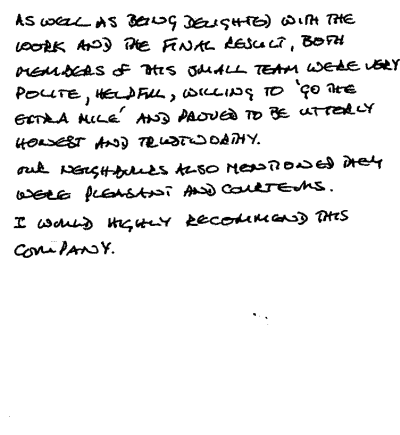 AS WELL AS BEING DELIGHTED WITH THE
WORK AND THE FINAL RESULT, BOTH
MEMBERS OF THIS SMALL TEAM WERE VERY
POLITE, HELPFUL, WILLING TO 'GO THE
EXTRA MILE' AND PROVED TO BE UTTERLY
HONEST AND TRUSTWORTHY.
OUR NEIGHBOURS ALSO MENTIONED THEY
WERE PLEASANT AND COURTEOUS.
I WOULD HIGHLY RECOMMEND THIS
COMPANY.